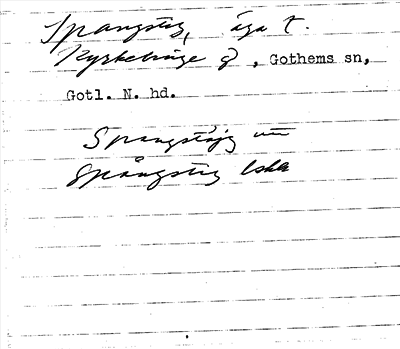 Spangstig, äga t.
Kyrkebinge g, Gothems sn,
Gotl. N. hd.
Spangstäjg
Spångstig